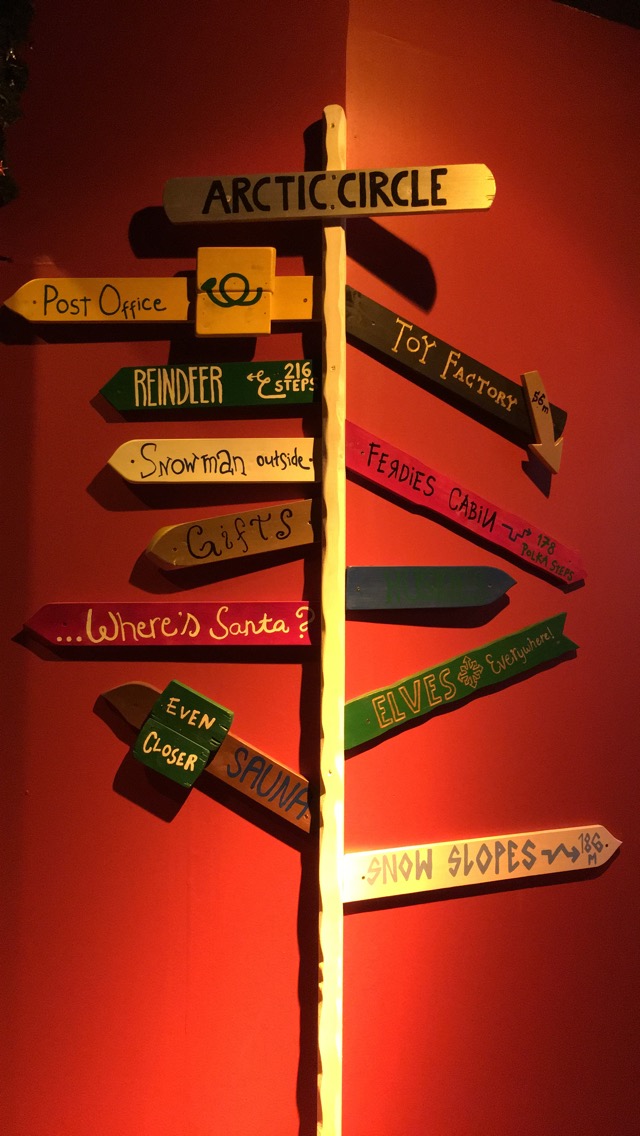 ARCTIC CIRCLE
Post Office
TOY FACTORY
56m
REINDEER
216
STEPS
Snowman outside
FERDIES CABIN
178
POLKA STEPS
Gifts
...Where's Santa?
ELVES Everywhere!
EVEN
CLOSER
SAUNA
SNOW SLOPES
186
M